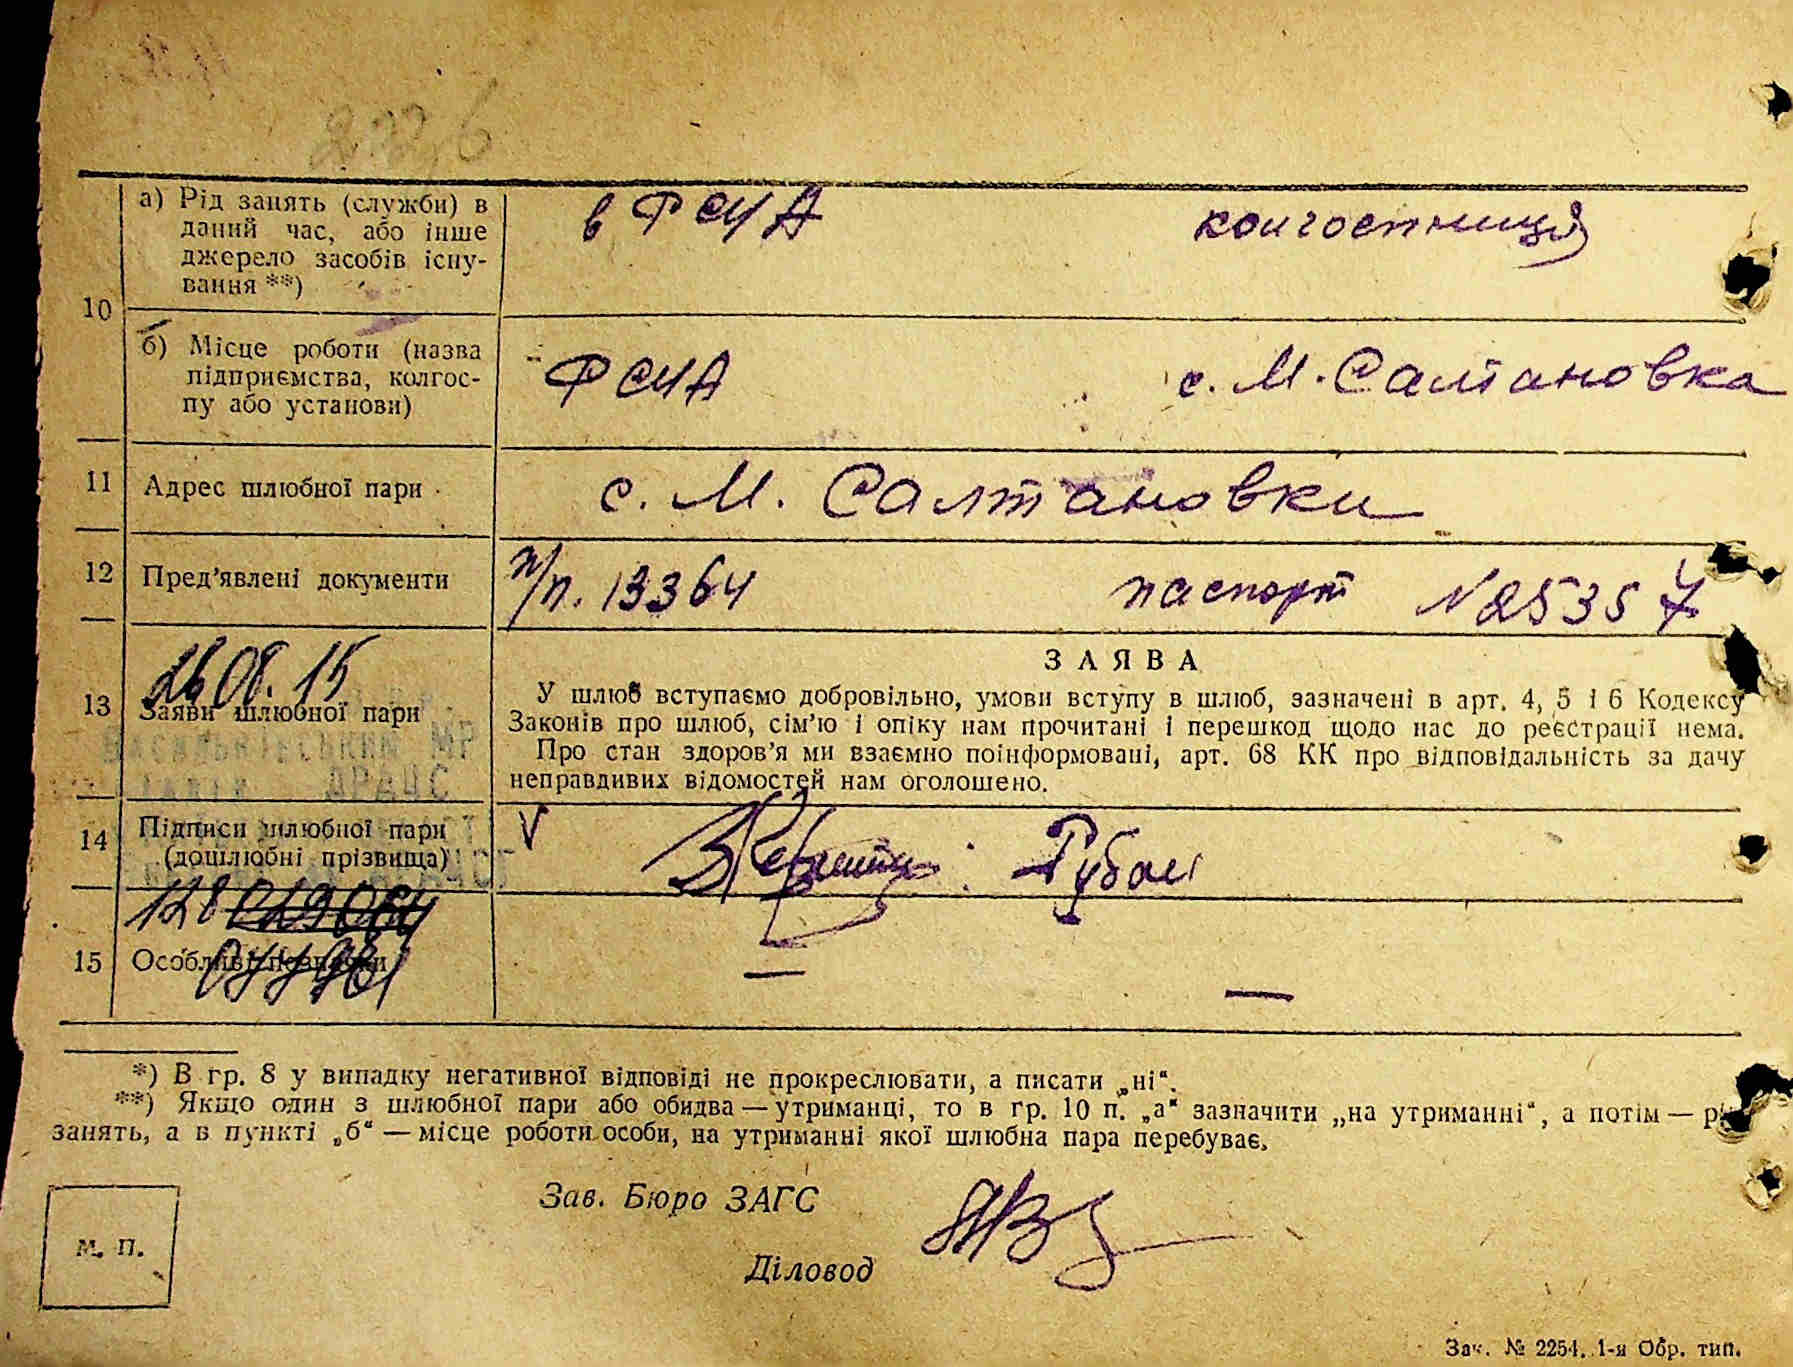 2226
а) Рід занять (служби) в даний час, або інше джерело засобів існування **)
в РСЧА
колгоспниця
10
б) Місце роботи (назва підприємства, колгоспу або установи)
РСЧА
с. М. Салтановка
11 Адрес шлюбної пари
с. М. Салтановки
12 Пред’явлені документи
п/п. 13364
паспорт N 25357
26 08. 15
13 Заяви шлюбної пари
ЗАЯВА
У шлюб вступаємо добровільно, умови вступу в шлюб, зазначені в арт. 4, 5 і 6 Кодексу
Законів про шлюб, сім’ю і опіку нам прочитані і перешкод щодо нас до реєстрації нема.
Про стан здоров’я ми взаємно поінформовані, арт. 68 КК про відповідальність за дачу
неправдивих відомостей нам оголошено.
Васильківський МР
ДРАЦС
14 Підписи шлюбної пари
(дошлюбні прізвища)
V
Рубан
128
15 Особливі позначки
—
—
*) В гр. 8 у випадку негативної відповіді не прокреслювати, а писати „ні“.
**) Якщо один з шлюбної пари або обидва — утриманці, то в гр. 10 п. „а“ зазначити „на утриманні“, а потім —
занять, а в пункті „б“ — місце роботи особи, на утриманні якої шлюбна пара перебуває.
Зав. Бюро ЗАГС
М. П.
Діловод
Зач. № 2254. 1-я Обр. тип.